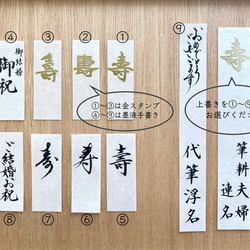 ④ ③ ② ①
御結婚
御祝
壽
壽
寿
①～③は金スタンプ
④～⑨は墨液手書き
ご結婚お祝
寿
寿
壽
⑧ ⑦ ⑥ ⑤
⑨
代筆浮名
寿
上書きを①～
お選びくだ
筆耕夫婦
連名